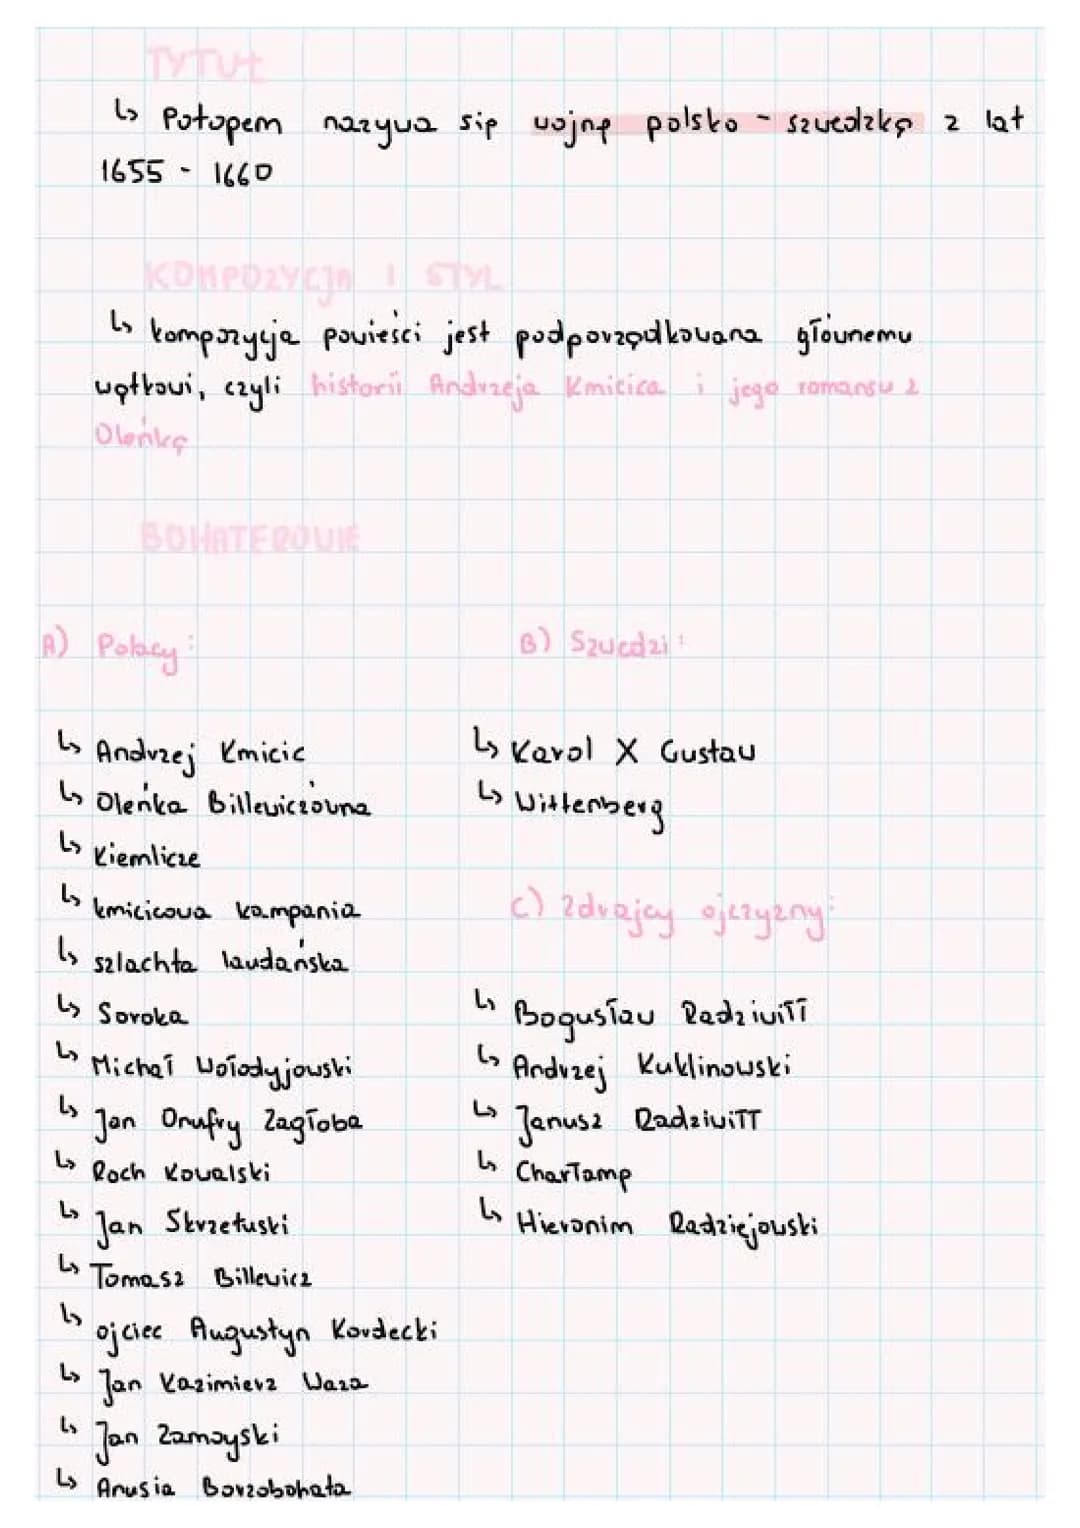 TYTUŁ
↳ Potopem nazywa się wojnę polsko - szwedzką z lat
1655 - 1660
KOMPOZYCJA I STYL
↳ kompozycja powieści jest podporządkowana głównemu
wątkowi, czyli historii Andrzeja Kmicica i jego romansu z
Oleńką
BOHATEROWIE
A) Polacy:
↳ Andrzej Kmicic
↳ Oleńka Billewiczówna
↳ Kiemlicze
↳ kmicicowa kampania
↳ szlachta laudańska
↳ Soroka
↳ Michał Wołodyjowski
↳ Jan Onufry Zagłoba
↳ Roch Kowalski
↳ Jan Skrzetuski
↳ Tomasz Billewicz
↳ ojciec Augustyn Kordecki
↳ Jan Kazimierz Waza
↳ Jan Zamoyski
↳ Anusia Borzobohata
B) Szwedzi:
↳ Karol X Gustaw
↳ Wittenberg
C) Zdrajcy ojczyzny:
↳ Bogusław Radziwiłł
↳ Andrzej Kuklinowski
↳ Janusz Radziwiłł
↳ Charłamp
↳ Hieronim Radziejowski